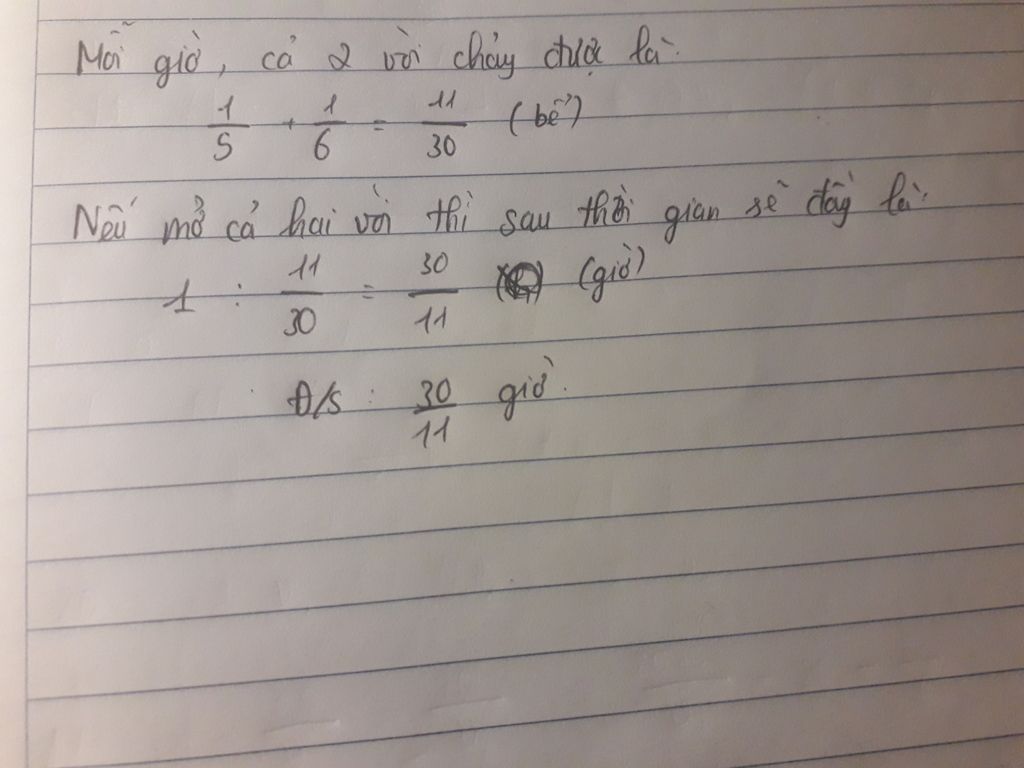 Mỗi giờ, cả 2 vòi chảy được là:
1/5 + 1/6 = 11/30 (bể)
Nếu mở cả hai vòi thì sau thời gian sẽ đầy là:
1 : 11/30 = 30/11 (giờ)
Đ/S : 30/11 giờ.